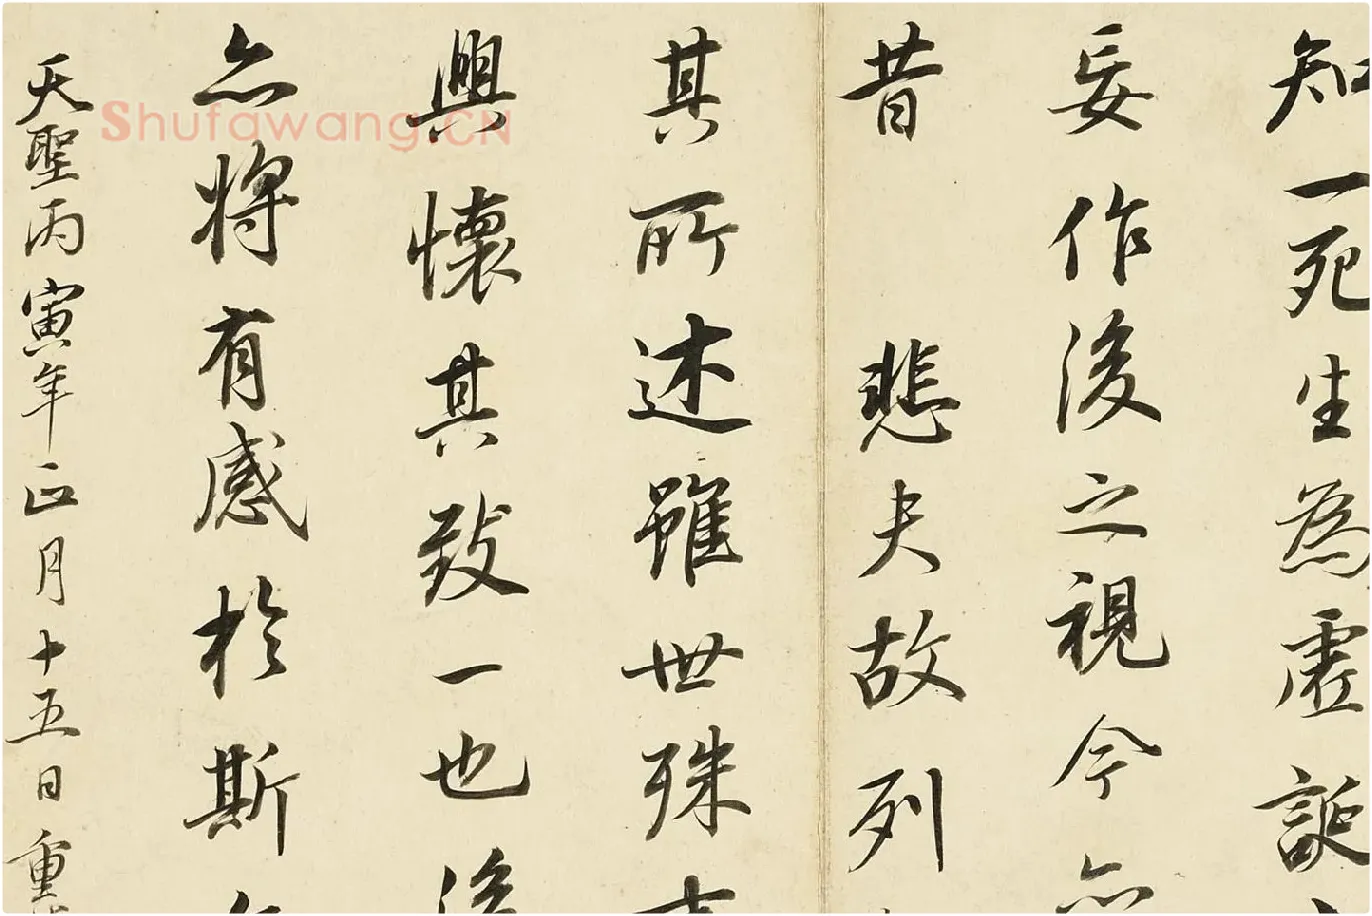 知一死生為虛誕
妄作後之視今亦
昔 悲夫故列
其所述雖世殊
興懷其致一也後
亦將有感於斯
天聖丙寅年正月十五日重
Shufawang.CN